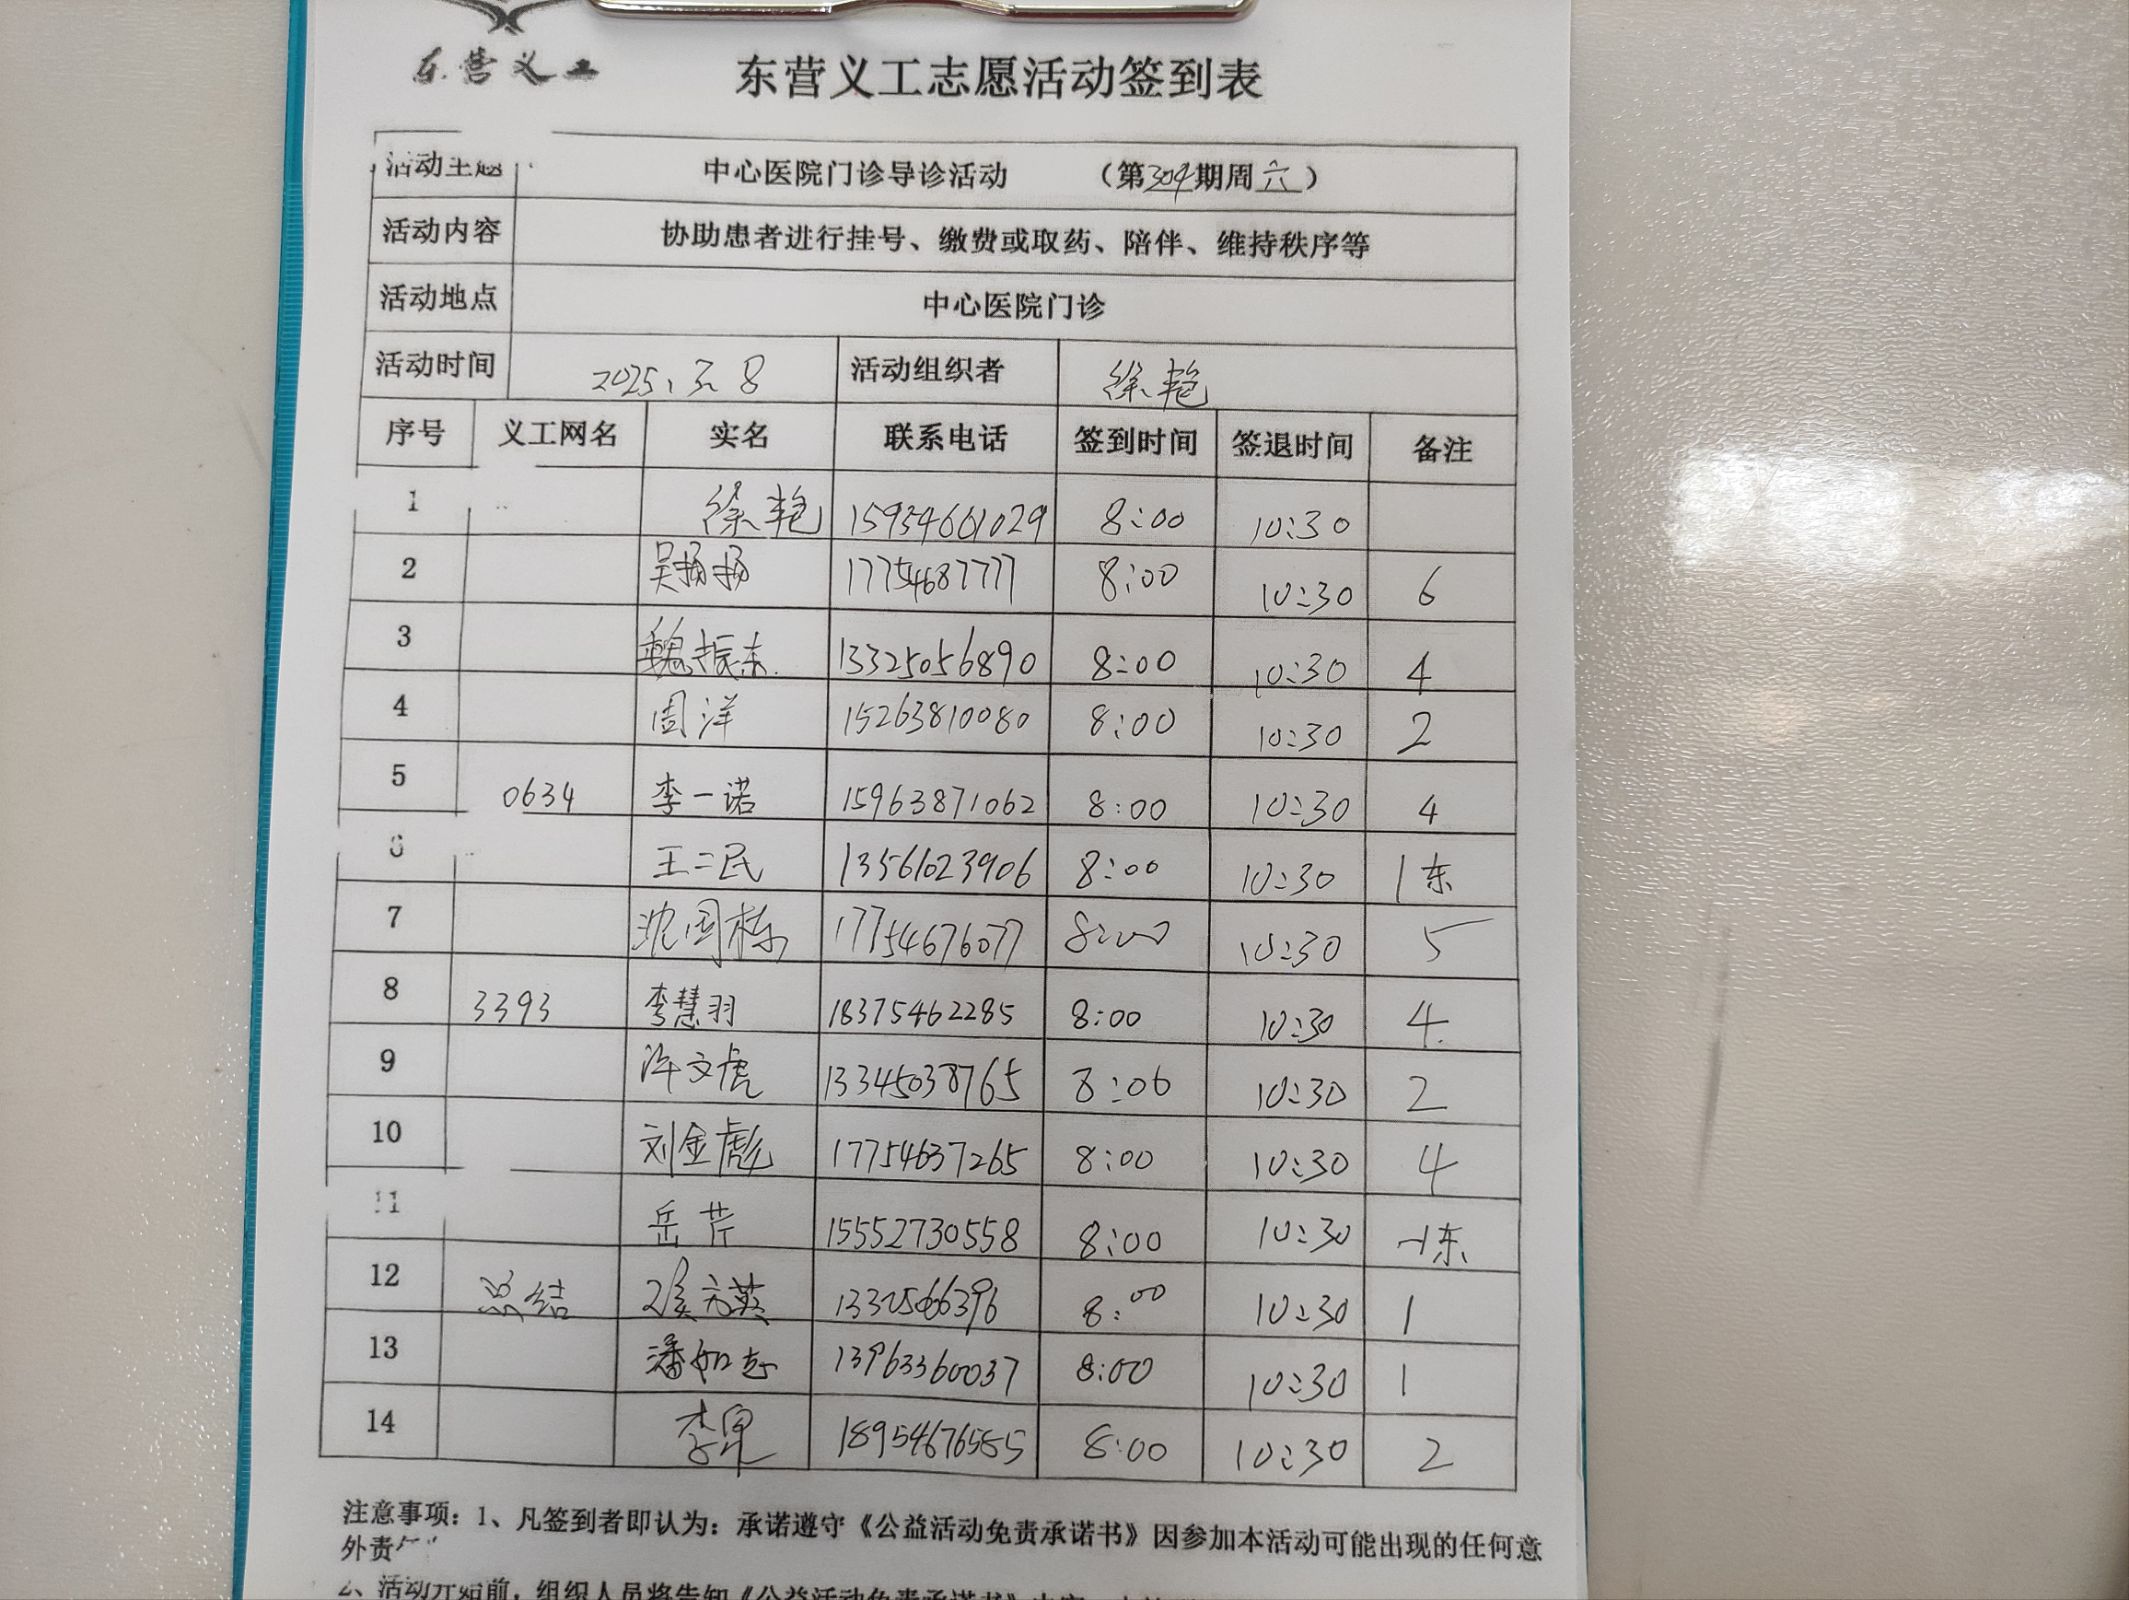 东营义工
东营义工志愿活动签到表
活动主题 中心医院门诊导诊活动 （第304期周六）
活动内容 协助患者进行挂号、缴费或取药、陪伴、维持秩序等
活动地点 中心医院门诊
活动时间 2025、3、8 活动组织者 徐艳
序号 义工网名 实名 联系电话 签到时间 签退时间 备注
1 徐艳 15954661029 8:00 10:30
2 吴扬扬 17754687777 8:00 10:30 6
3 魏振东 13325056890 8:00 10:30 4
4 周洋 15263810080 8:00 10:30 2
5 0634 李一诺 15963871062 8:00 10:30 4
6 王二民 13561023906 8:00 10:30 1东
7 沈国栋 17754676077 8:00 10:30 5
8 3393 李慧羽 18375462285 8:00 10:30 4
9 许文虎 13345038765 8:00 10:30 2
10 刘金彪 17754637265 8:00 10:30 4
11 岳芹 15552730558 8:00 10:30 1东
12 总结 8:00 10:30 1
13 潘如志 13963360037 8:00 10:30 1
14 18954676585 8:00 10:30 2
注意事项：1、凡签到者即认为：承诺遵守《公益活动免责承诺书》因参加本活动可能出现的任何意
外责
2、活动开始前，组织人员将告知《公益活动免责承诺书》